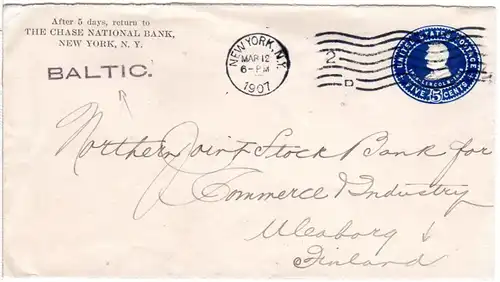 After 5 days, return to
THE CHASE NATIONAL BANK,
NEW YORK, N. Y.
BALTIC.
NEW YORK, N.Y.
MAR 12
6-PM
1907
2
D
UNITED STATES POSTAGE
FIVE 5 CENTS
Northern Joint Stock Bank for
Commerce & Industry
Uleaborg
Finland